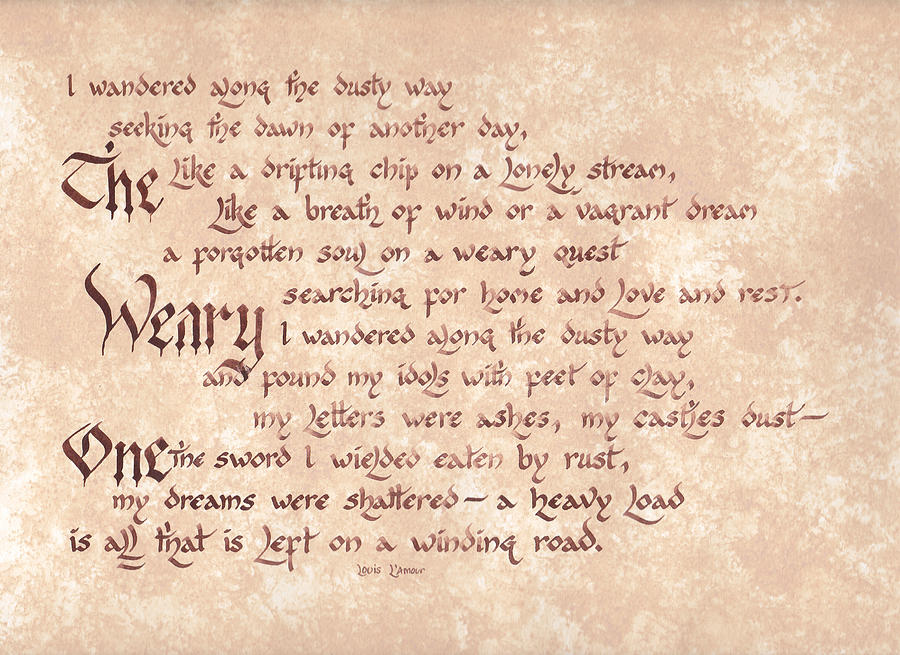 I wandered along the dusty way
seeking the dawn of another day,
The
Like a drifting chip on a lonely stream,
Like a breath of wind or a vagrant dream
a forgotten soul on a weary quest
Weary
searching for home and love and rest.
I wandered along the dusty way
and found my idols with feet of clay,
my letters were ashes, my castles dust—
One
the sword I wielded eaten by rust,
my dreams were shattered — a heavy load
is all that is left on a winding road.
Louis L'Amour